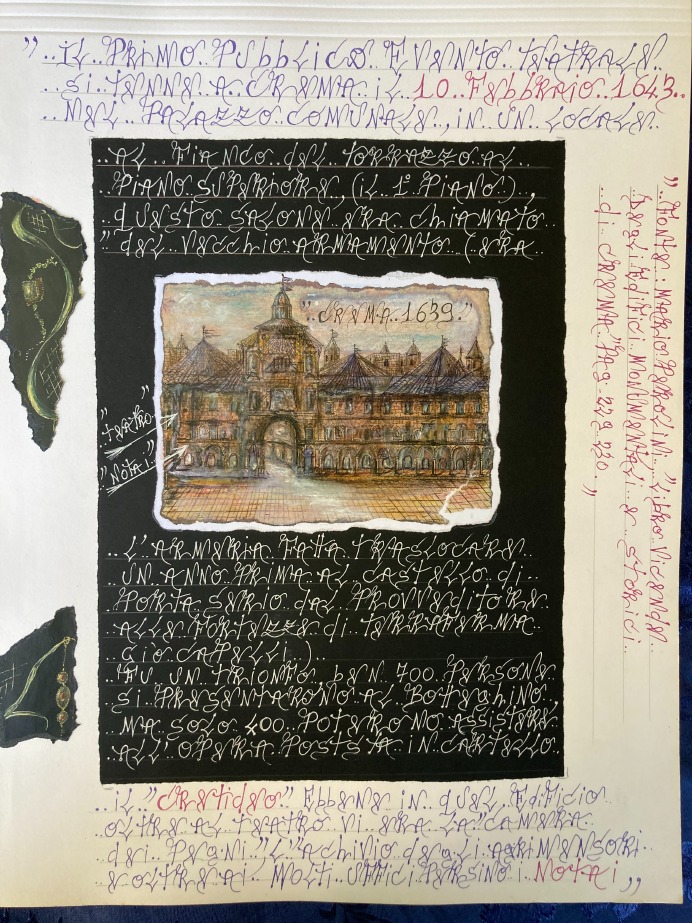 " .. IL PRIMO PUBBLICO EVENTO TEATRALE ..
.. SI TENNE A CREMA IL 10 FEBBRAIO 1643 ..
.. NEL PALAZZO COMUNALE, IN UN LOCALE ..
.. AL FIANCO DEL TORRAZZO AL ..
.. PIANO SUPERIORE, (IL 1° PIANO) ..,
.. QUESTO SALONE ERA CHIAMATO ..
" DEL VECCHIO ARMAMENTO (ERA ..
" .. CREMA .. 1639 .. "
" TEATRO "
" NOTAI "
.. L'ARMERIA FATTA TRASLOCARE ..
.. UN ANNO PRIMA AL CASTELLO DI ..
.. PORTA SERIO DAL PROVVEDITORE
.. ALLE FORTEZZE DI TERRAFERMA ..
.. GIO CAPELLI ) ..
.. FU UN TRIONFO BEN 700 PERSONE
.. SI PRESENTARONO AL BOTTEGHINO,
.. MA SOLO 400 POTERONO ASSISTERE
.. ALL'OPERA POSTSTA IN CARTELLO ..
.. IL "CRETIDEO" EBBENE IN QUEL EDIFICIO ..
.. OLTRE AL TEATRO VI ERA LA "CAMERA ..
.. DEI PEGNI", L'ACHIVIO DEGLI AGRIMENSORI ..
.. E OLTRE AI MOLTI UFFICI PERSINO I NOTAI ,,
" .. FONTE .. MARIO PEROLINI, "LIBRO VICENDE ..
.. DEGLI EDIFICI MONUMENTALI E STORICI ..
.. DI CREMA" PAG. 229 230 .. "